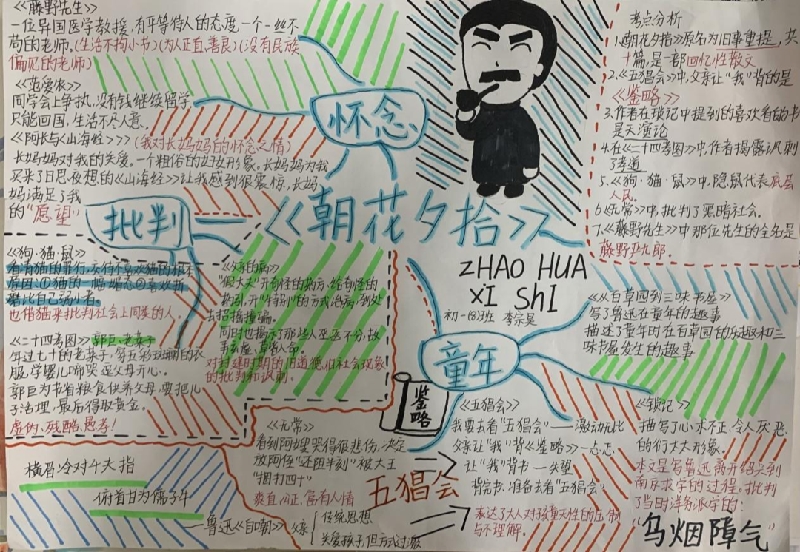 《藤野先生》
一位异国医学教授,有平等待人的态度一个一丝不
苟的老师,(生活不拘小节)(为人正直,善良)(没有民族
偏见的老师)
《范爱农》
同学会上争执
只能回国,生活不尽人意
《阿长与《山海经》》(我对长妈妈的怀念之情)
长妈妈对我的关爱,一个粗俗的妇女形象,长妈妈为我
买来了日思夜想的《山海经》让我感到很震惊,长妈
妈满足了我
的“愿望”
怀念
批判
《朝花夕拾》
ZHAO HUA
XI SHI
童年
考点分析
1.《朝花夕拾》原名为旧事重提,共
十篇,是一部回忆性散文
2.《五猖会》中,父亲让“我”背的是
《鉴略》
3.作者在琐记中提到的喜欢看的书
是天演论
4.在《二十四孝图》中,作者揭露讽刺
了孝道
5.《狗·猫·鼠》中,隐鼠代表底层
人民
6.《无常》中,批判了黑暗社会.
7.《藤野先生》中那位先生的全名是
藤野严九郎.
《狗·猫·鼠》
也借猫来批判社会上同类的人
《二十四孝图》郭巨·老莱子
年过七十的老莱子,穿五彩斑斓的衣
服,学婴儿啼哭逗父母开心.
郭巨为节省粮食供养父母,要把儿
子活埋,最后得取黄金.
虚伪、残酷、愚孝!
《父亲的病》
的批判和讽刺
《从百草园到三味书屋》
写了鲁迅在童年的趣事
描述了童年时在百草园的乐趣和三
味书屋发生的趣事
鉴略
《五猖会》
我要去看“五猖会”——激动无比
父亲让“我”背《鉴略》——忐忑
让“我”背书——失望
背完书,准备去看“五猖会”
表达了大人对孩童天性的压制
与不理解.
五猖会
《无常》
看到阿嫂哭得很悲伤,决定
放阿侄“还阳半刻”被大王
“捆打四十”
爽直、公正、富有人情
《琐记》
描写了心术不正、令人厌恶
的衍太太形象.
本文是写鲁迅离开绍兴到
南京求学的过程,批判
了当时洋务派学的:
乌烟障气
横眉冷对千夫指
俯首甘为孺子牛
——鲁迅《自嘲》
传统思想